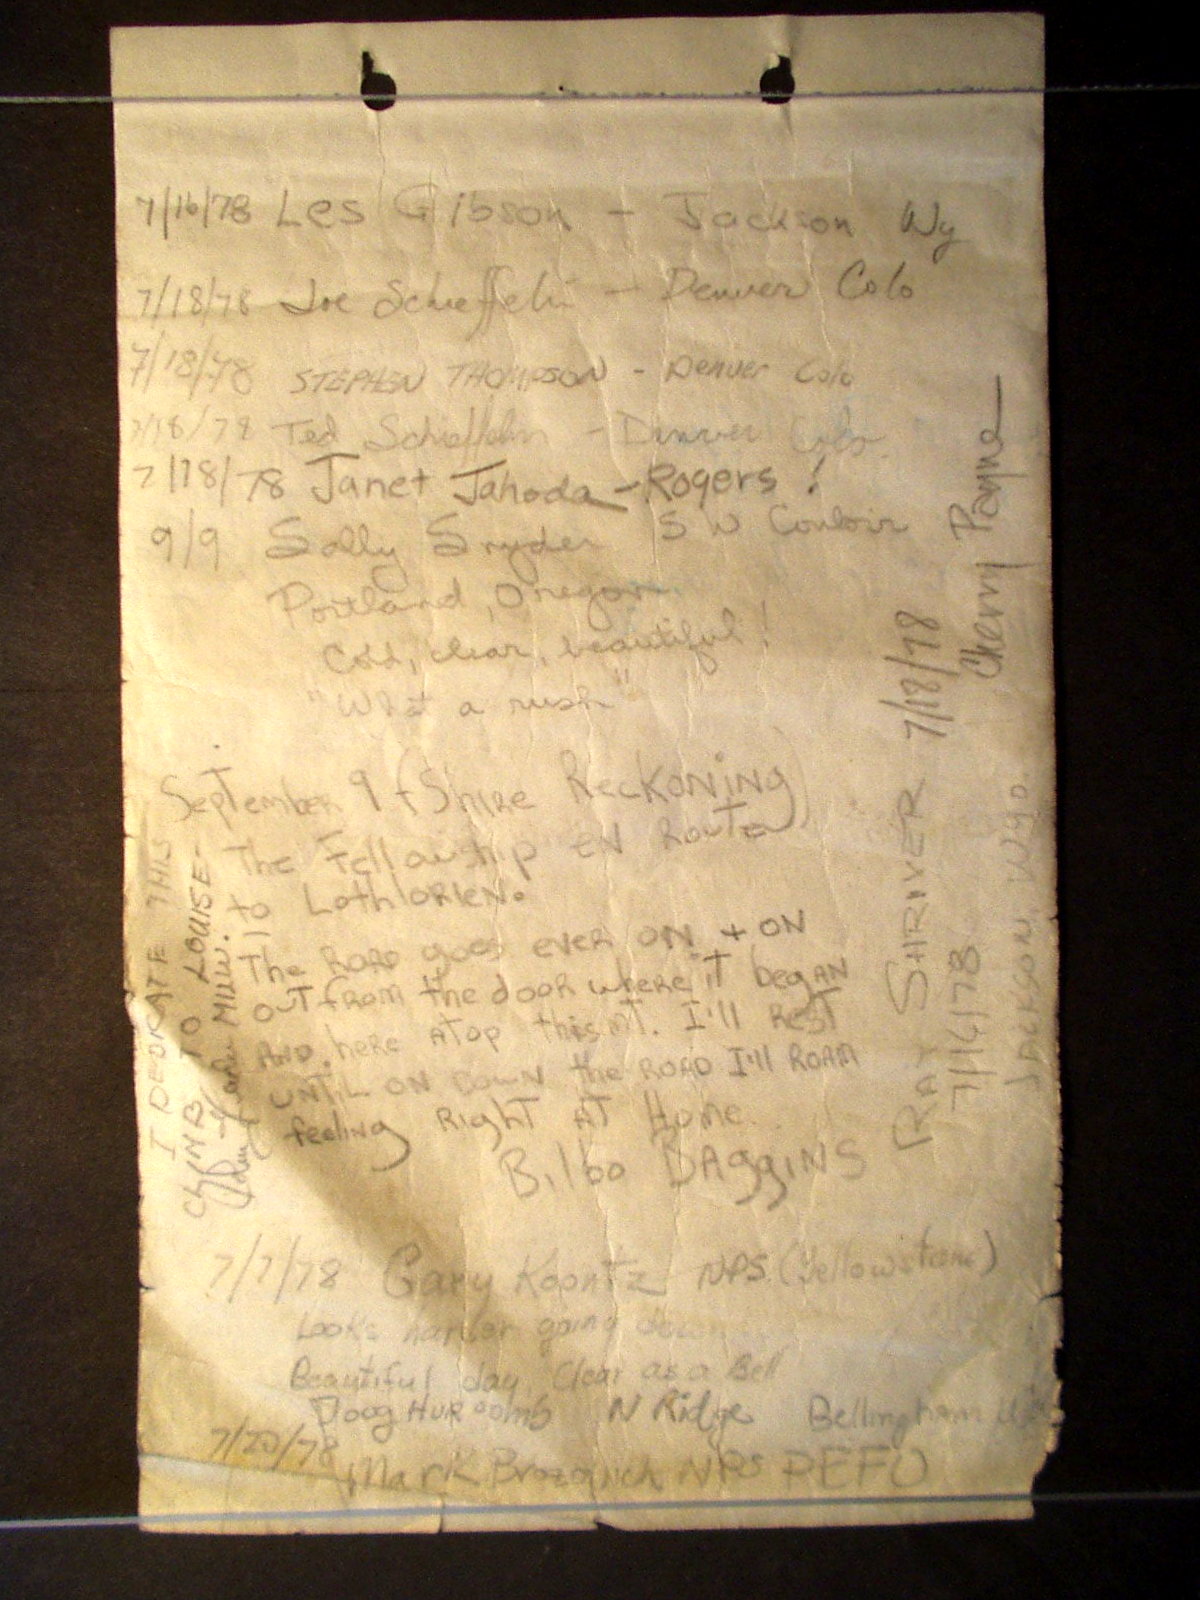 7/16/78 Les Gibson - Jackson Wy
7/18/78 Joe Schieffelin - Denver Colo
7/18/78 STEPHEN THOMPSON - Denver Colo
7/18/78 Ted Schieffelin - Denver Colo.
7/18/78 Janet Jahoda-Rogers!
9/9 Sally Snyder S W Couloir
Portland, Oregon
Cold, clear, beautiful!
"What a rush"
September 9 (Shire Reckoning)
The Fellowship en Route
to Lothlorien.
The ROAD goes ever ON + ON
out from the door where it began
AND here atop this mt. I'll Rest
UNTIL ON DOWN the ROAD I'll ROAM
feeling Right At Home
Bilbo BAggiNS
7/7/78 Gary Koontz NPS (Yellowstone)
Looks harder going down
Beautiful day Clear as a Bell
Doog N Ridge Bellingham
7/20/78
Mark NPS PEFO
I DEDICATE THIS
CLIMB TO LOUISE-
MILW.
RAY SHRIVER 7/18/78
Cherry Payne
7/16/78
JACKSON, WYO.